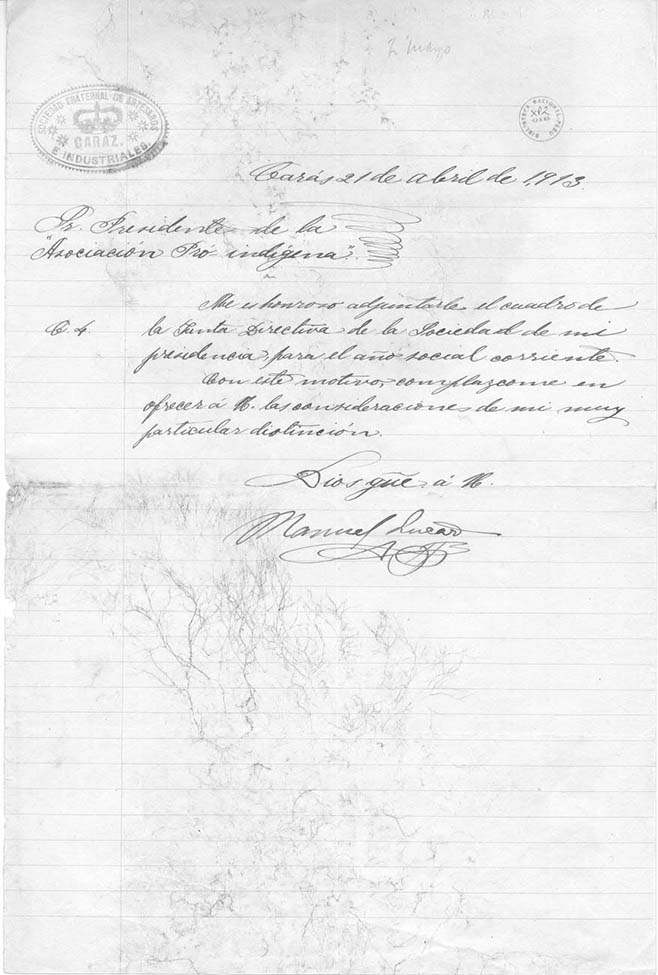 2 Mayo
SOCIEDAD FRATERNAL DE ARTESANOS
CARAZ.
E INDUSTRIALES.
BIBLIOTECA NACIONAL PERU
XP2
Carás 21 de abril de 1,913.
Sr. Presidente de la
"Asociación Pró indígena".
Me es honroso adjuntarle el cuadro de
la Junta Directiva de la Sociedad de mi
presidencia, para el año social corriente.
Con este motivo, complazcome en
ofrecer á U. las consideraciones de mi muy
particular distinción.
Dios güe á U.
Manuel